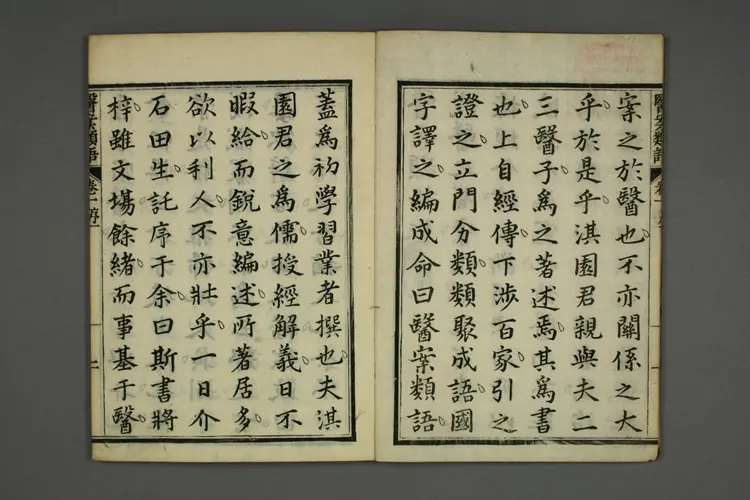 案之於醫也不亦關係之大
乎於是乎淇園君親與夫二
三醫子爲之著述焉其爲書
也上自經傳下涉百家引之
證之立門分類類聚成語國
字譯之編成命曰醫案類語
蓋爲初學習業者撰也夫淇
園君之爲儒授經解義日不
暇給而銳意編述所著居多
欲以利人不亦壯乎一日介
石田生託序于余曰斯書將
梓雖文場餘緒而事基于醫
醫案類語 卷一序